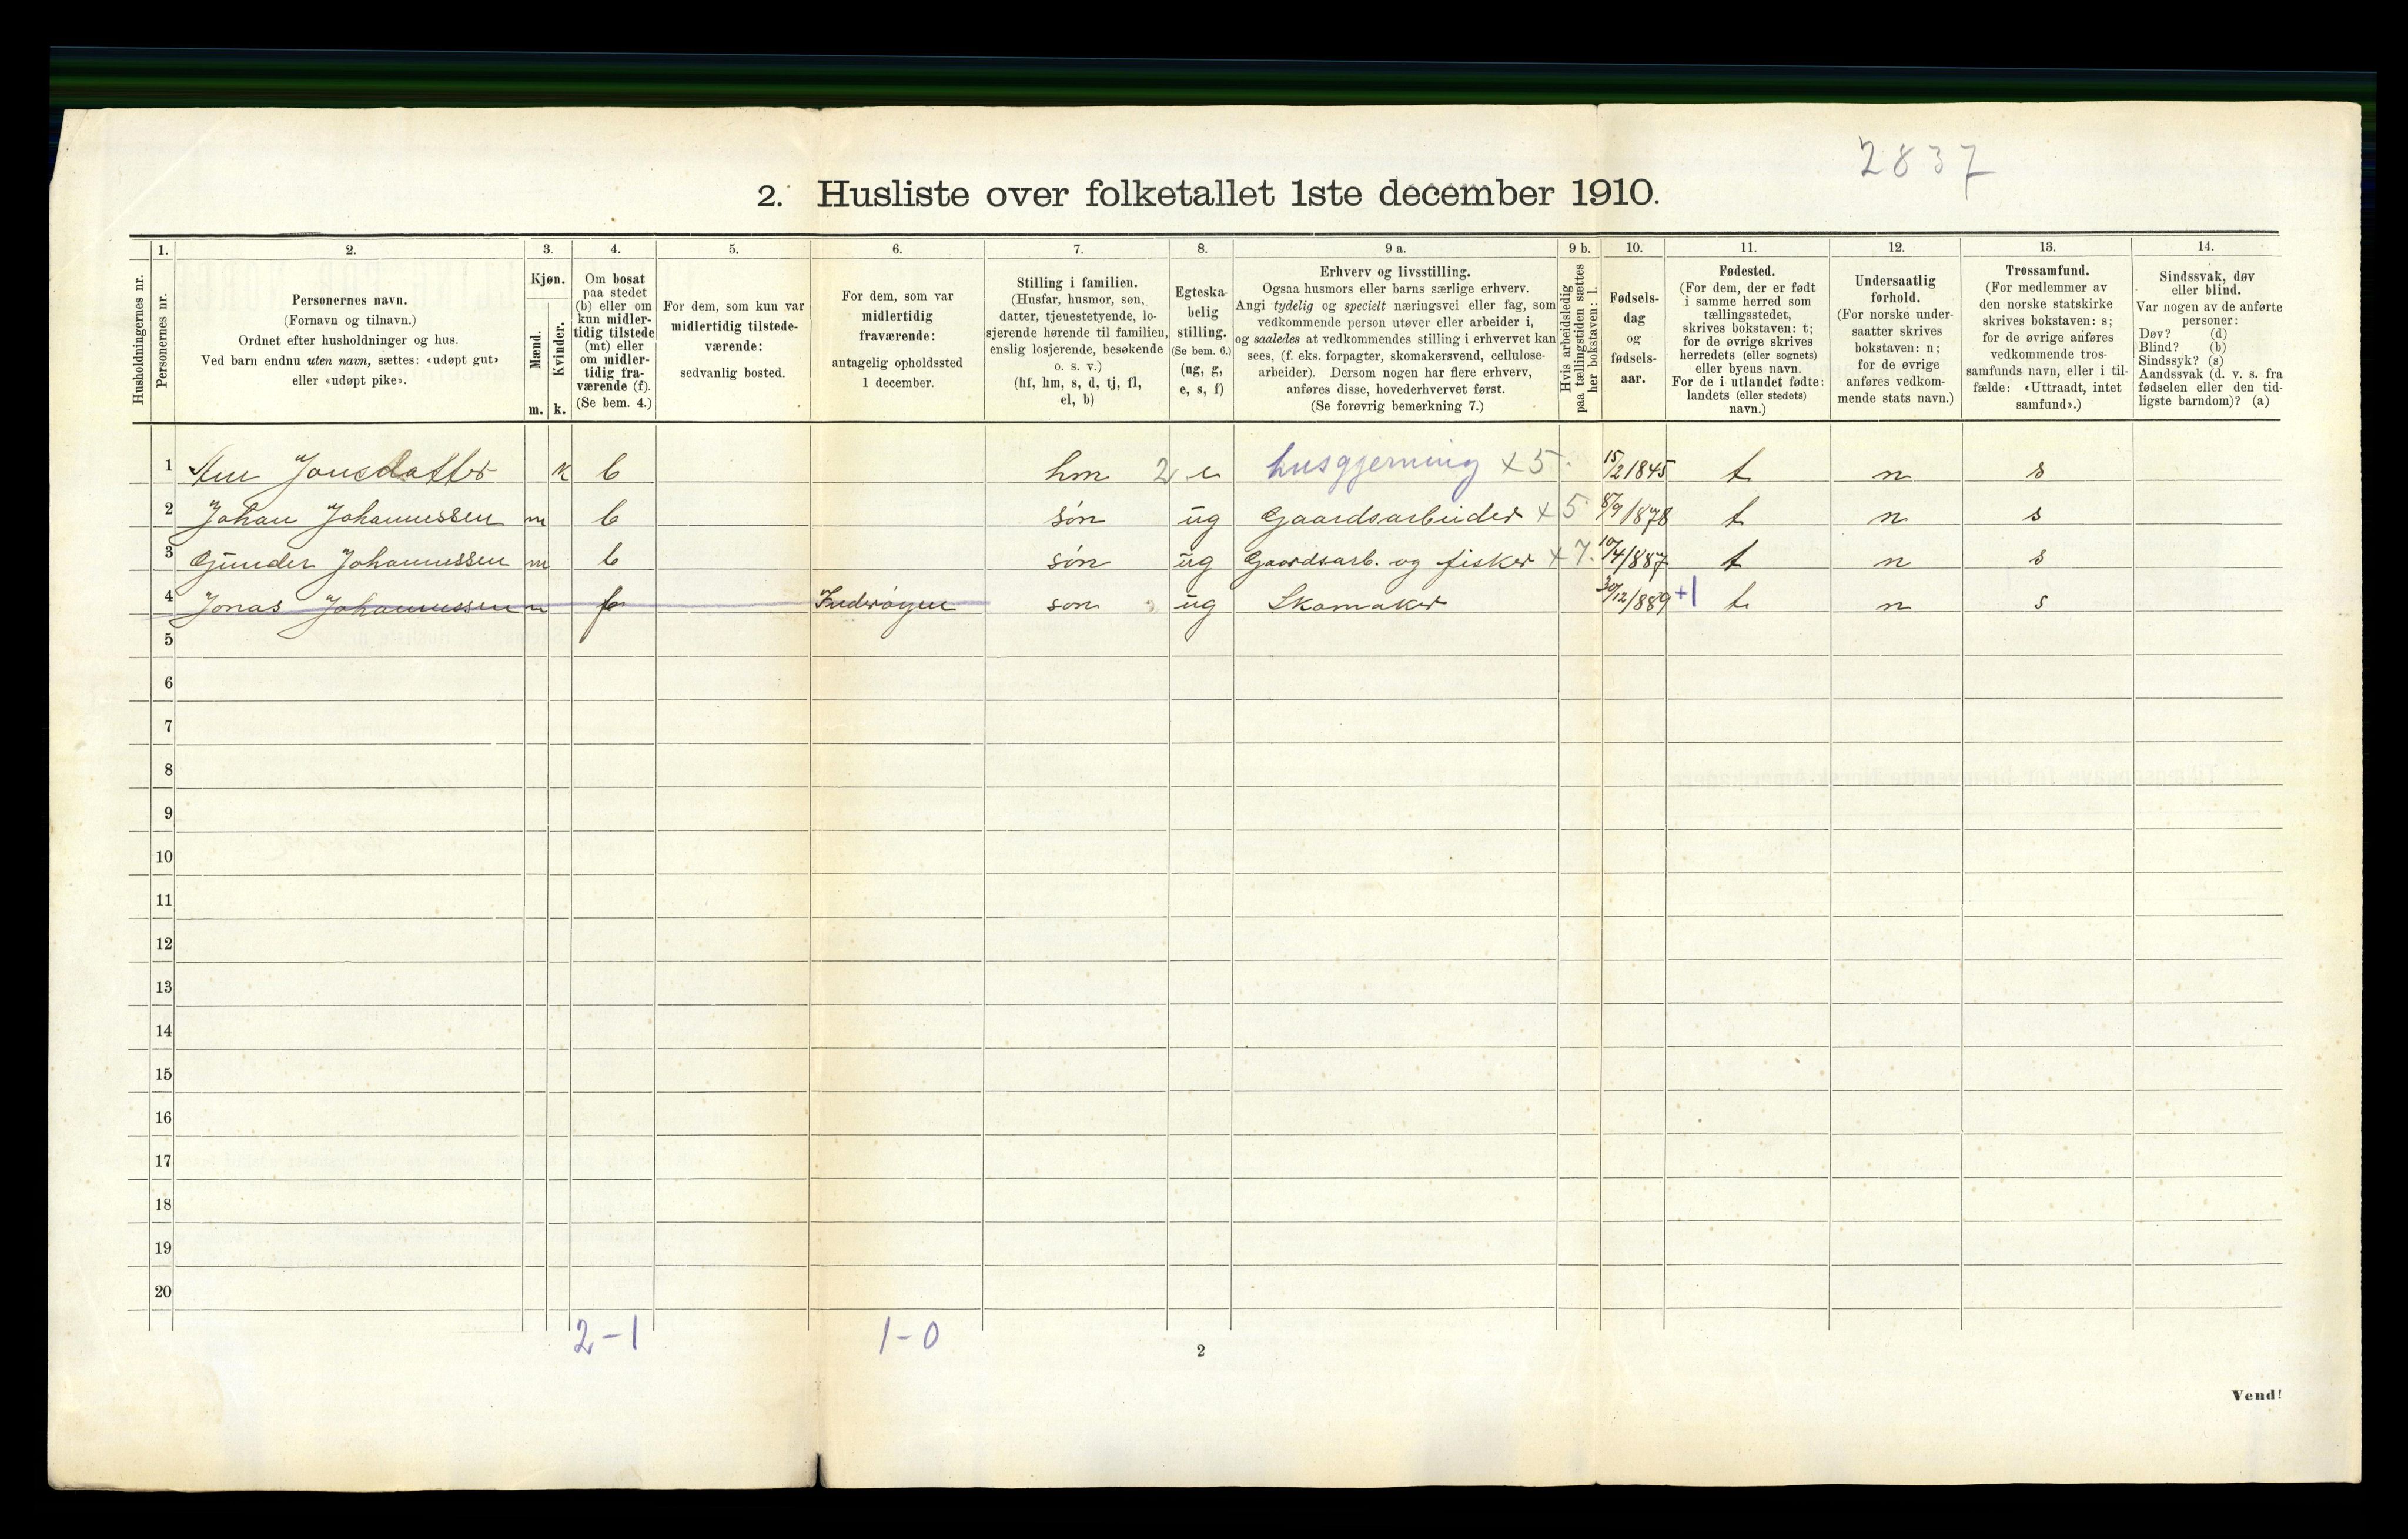 2837
2. Husliste over folketallet 1ste december 1910.
1. 2. 3. 4. 5. 6. 7. 8. 9 a. 9 b. 10. 11. 12. 13. 14.
Husholdningernes nr.
Personernes nr.
Personernes navn.
(Fornavn og tilnavn.)
Ordnet efter husholdninger og hus.
Ved barn endnu uten navn, sættes: «udøpt gut»
eller «udøpt pike».
Kjøn.
Mænd.
Kvinder.
m. k.
Om bosat
paa stedet
(b) eller om
kun midler-
tidig tilstede
(mt) eller
om midler-
tidig fra-
værende (f).
(Se bem. 4.)
For dem, som kun var
midlertidig tilstede-
værende:
sedvanlig bosted.
For dem, som var
midlertidig
fraværende:
antagelig opholdssted
1 december.
Stilling i familien.
(Husfar, husmor, søn,
datter, tjenestetyende, lo-
sjerende hørende til familien,
enslig losjerende, besøkende
o. s. v.)
(hf, hm, s, d, tj, fl,
el, b)
Egteska-
belig
stilling.
(Se bem. 6.)
(ug, g,
e, s, f)
Erhverv og livsstilling.
Ogsaa husmors eller barns særlige erhverv.
Angi tydelig og specielt næringsvei eller fag, som
vedkommende person utøver eller arbeider i,
og saaledes at vedkommendes stilling i erhvervet kan
sees, (f. eks. forpagter, skomakersvend, cellulose-
arbeider). Dersom nogen har flere erhverv,
anføres disse, hovederhvervet først.
(Se forøvrig bemerkning 7.)
Hvis arbeidsledig
paa tællingstiden sættes
her bokstaven: l.
Fødsels-
dag
og
fødsels-
aar.
Fødested.
(For dem, der er født
i samme herred som
tællingsstedet,
skrives bokstaven: t;
for de øvrige skrives
herredets (eller sognets)
eller byens navn.
For de i utlandet fødte:
landets (eller stedets)
navn.)
Undersaatlig
forhold.
(For norske under-
saatter skrives
bokstaven: n;
for de øvrige
anføres vedkom-
mende stats navn.)
Trossamfund.
(For medlemmer av
den norske statskirke
skrives bokstaven: s;
for de øvrige anføres
vedkommende tros-
samfunds navn, eller i til-
fælde: «Uttraadt, intet
samfund».)
Sindssvak, døv
eller blind.
Var nogen av de anførte
personer:
Døv? (d)
Blind? (b)
Sindssyk? (s)
Aandssvak (d. v. s. fra
fødselen eller den tid-
ligste barndom)? (a)
1 Jonsdatter k b hm 2 e husgjerning x 5 15/2 1845 t n s
2 Johan Johannessen m b søn ug Gaardsarbeider x 5 8/9 1878 t n s
3 Gunder Johannessen m b søn ug Gaardsarb. og fisker x 7. 10/4 1887 t n s
4 Jonas Johannessen m f Inderøyen søn ug Skomaker 30/12/889 +1 t n s
5
6
7
8
9
10
11
12
13
14
15
16
17
18
19
20
2-1 1-0
2
Vend!